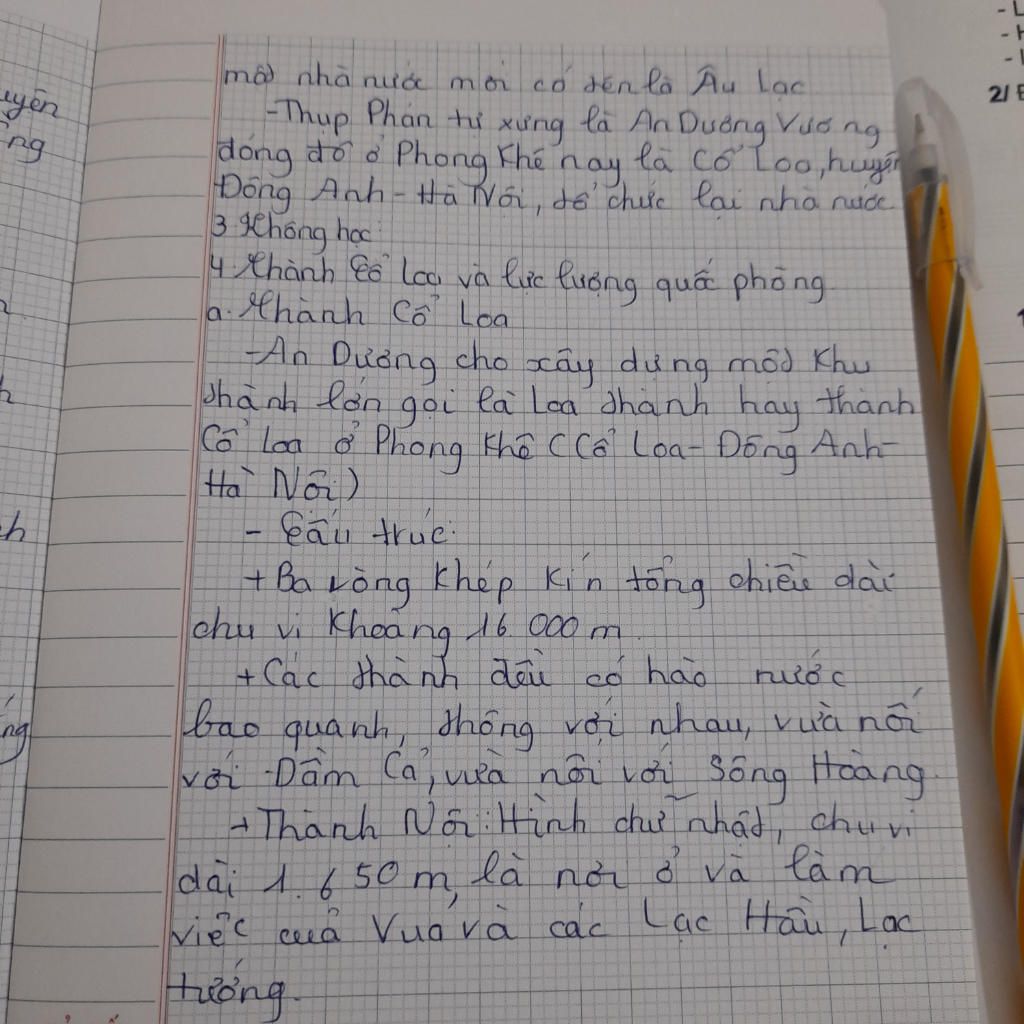 một nhà nước mới có tên là Âu Lạc
-Thục Phán tự xưng là An Dương Vương
đóng đô ở Phong Khê nay là Cổ Loa, huyện
Đông Anh-Hà Nội, tổ chức lại nhà nước
3 Không học
4. Thành Cổ Loa và lực lượng quốc phòng
a. Thành Cổ Loa
-An Dương cho xây dựng một khu
thành lớn gọi là Loa thành hay thành
Cổ Loa ở Phong Khê (Cổ Loa-Đông Anh-
Hà Nội)
- Cấu trúc:
+Ba vòng khép kín tổng chiều dài
chu vi khoảng 16 000 m.
+Các thành đều có hào nước
bao quanh, thông với nhau, vừa nối
với Đầm Cả, vừa nối với Sông Hoàng.
+Thành Nội: Hình chữ nhật, chu vi
dài 1.650m, là nơi ở và làm
việc của Vua và các Lạc Hầu, Lạc
tướng.
uyên
ng
h
ch
ng
2/